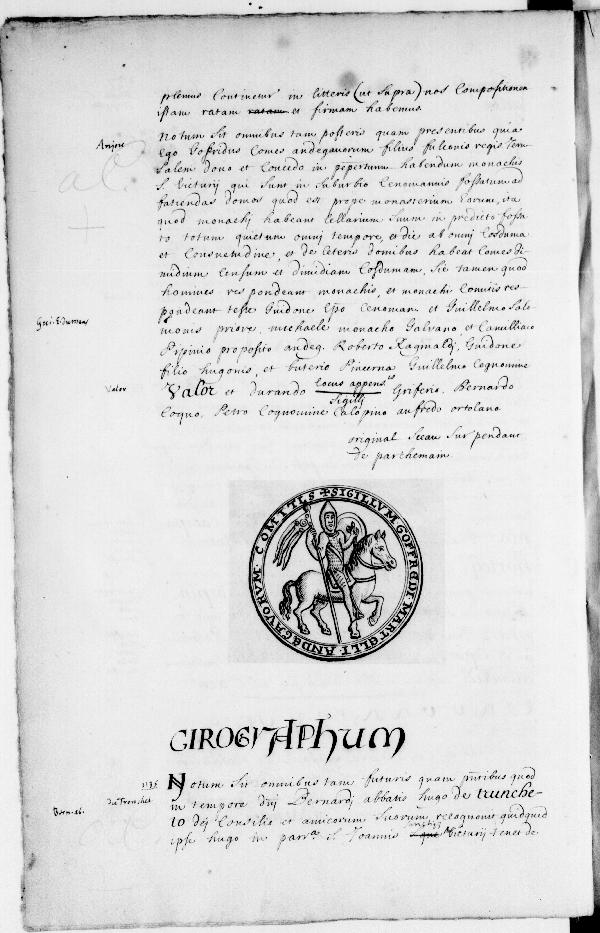 plenius Continetur in litteris (ut supra) nos Compositionem
istam ratam ratam et firmam habemus
Anjou
Notum Sit omnibus tam posteris quam presentibus quia
Ego Goffridus Comes andegavorum filius fulconis regis Jeru
Salem Dono et Concedo in perpetuum habendum monachis
S. Victurij qui Sunt in Suburbio Cenomannis fossatum ad
fatiendas domos quod est prope monasterium Eorum, ita
quod monachj habeant Cellarium Suum in predicto fossa
to totum quietum omnj tempore, et die ab omnj Cosduma
et Consuetudine, et de Ceteris domibus habeat Comes di
midium Censum et dimidiam Cosdumam, Sic tamen quod
homines respondeant monachis, et monachi Comitis res
pondeant teste Guidone Epo Cenoman. et Guillelmo Salo
monis priore, michaele monacho Galvano, et Camilliaco
Pipinio proposito andeg. Roberto Raginaldj, Guidone
filio hugonis, et buterio Pincerna Guillelmo Cognomine
Valor
Valor et durando locus appens. Griferio, Bernardo
Sigillj
Coquo, Petro Cognomine Calopino aufredo ortolano
original Sceau Sur pendant
de parchemain
✠ SIGILLVM GOFFREDI MARTELLI ANDEGAVORUM COMITIS
CIROGRAPhum
1136
Notum Sit omnibus tam futuris quam pntibus quod
du Tronchet
in tempore dnj Bernardj abbatis hugo de trunche-
Bern. ab.
to dej Consilio et amicorum Suorum recognovit quidquid
ipse hugo in parra S. Joannis que Victurij tenet de